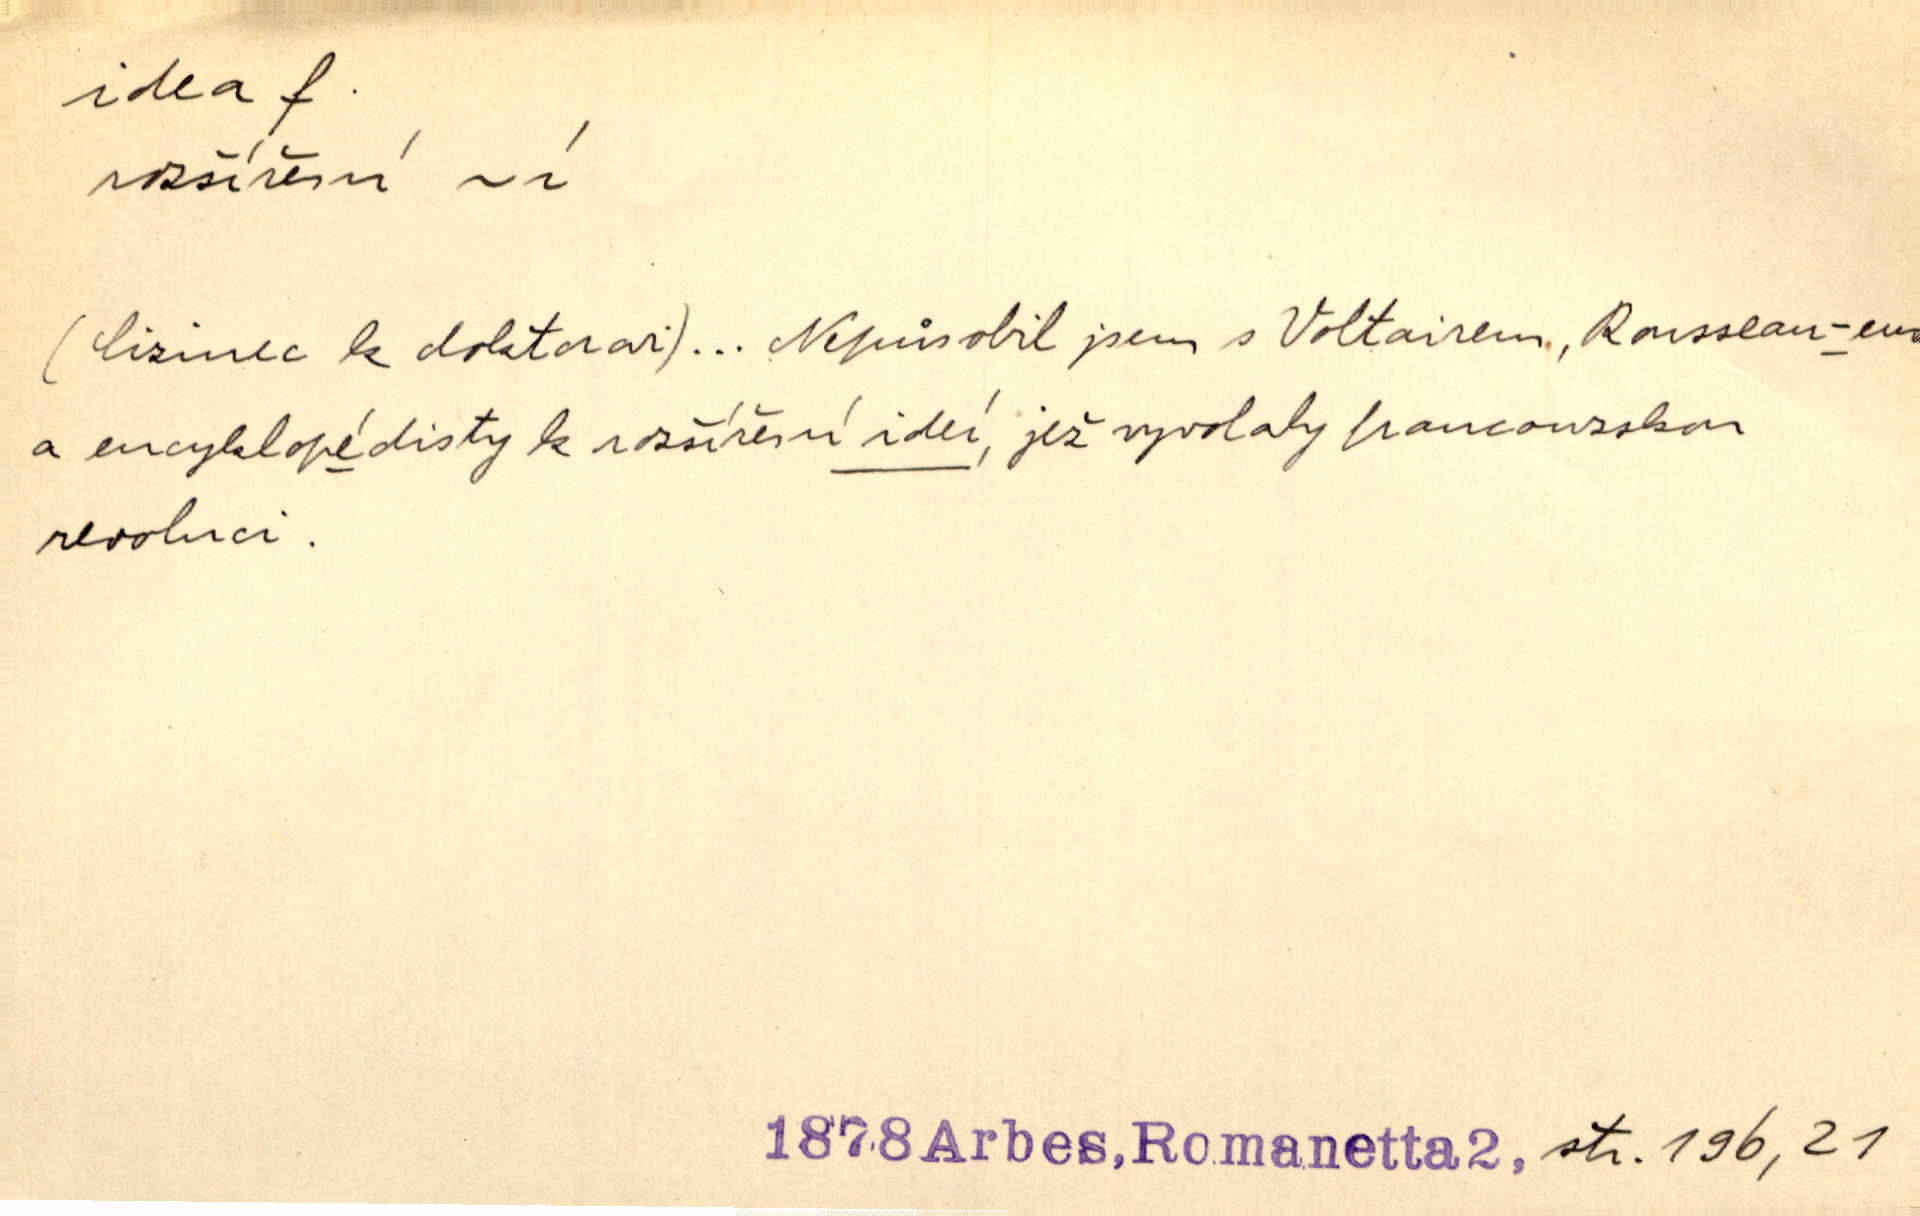 idea f.
rozšíření ~í
(cizinec k doktorovi)... Nepůsobil jsem s Voltairem, Rousseau-em
a encyklopédisty k rozšíření ideí, jež vyvolaly francouzskou
revoluci.
1878 Arbes, Romanetta 2, str. 196, 21